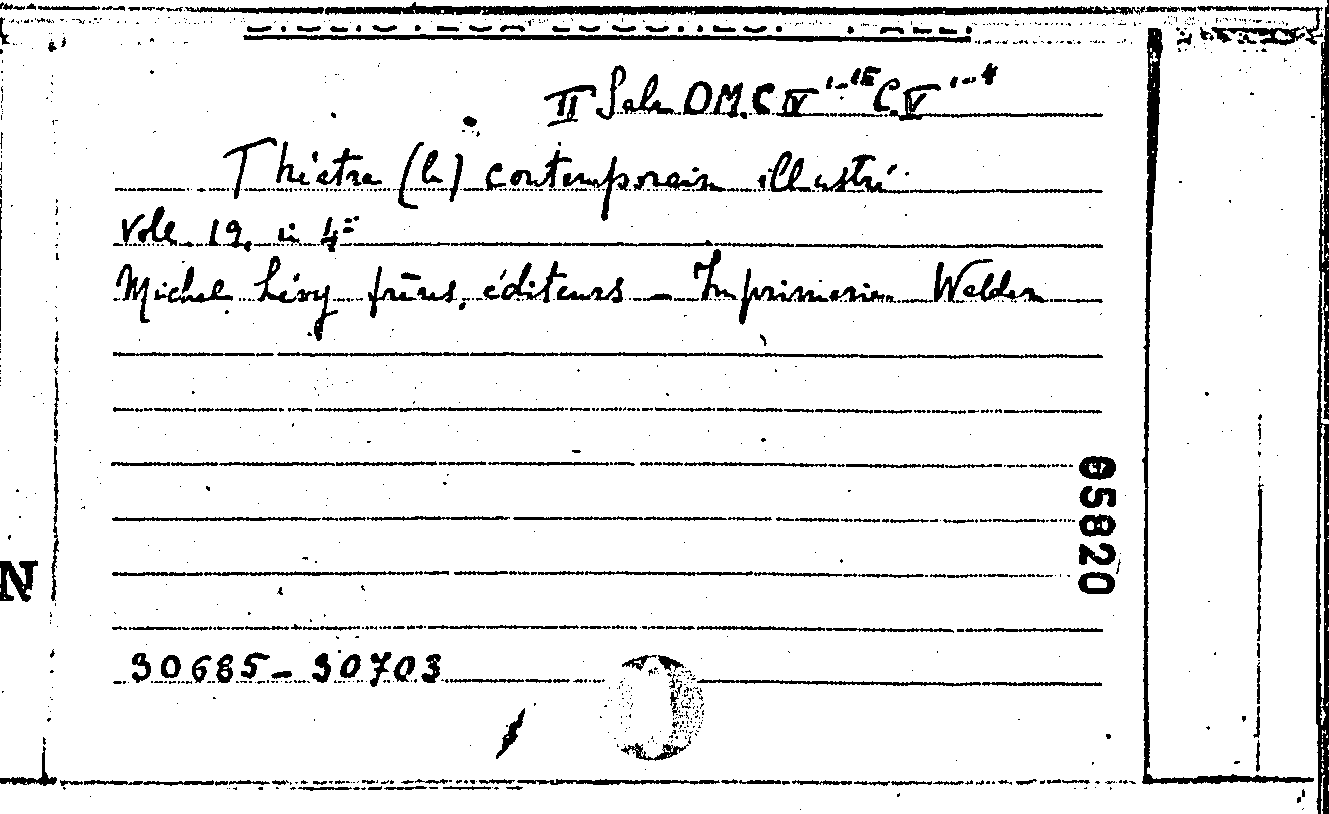 II Sala O.M. C IV 1-15 C. V 1-4
Théâtre (le) contemporain illustré
Voll. 19, in 4º
Michel Lévy frères, éditeurs — Imprimerie Walder
05820
N
30685 - 30703